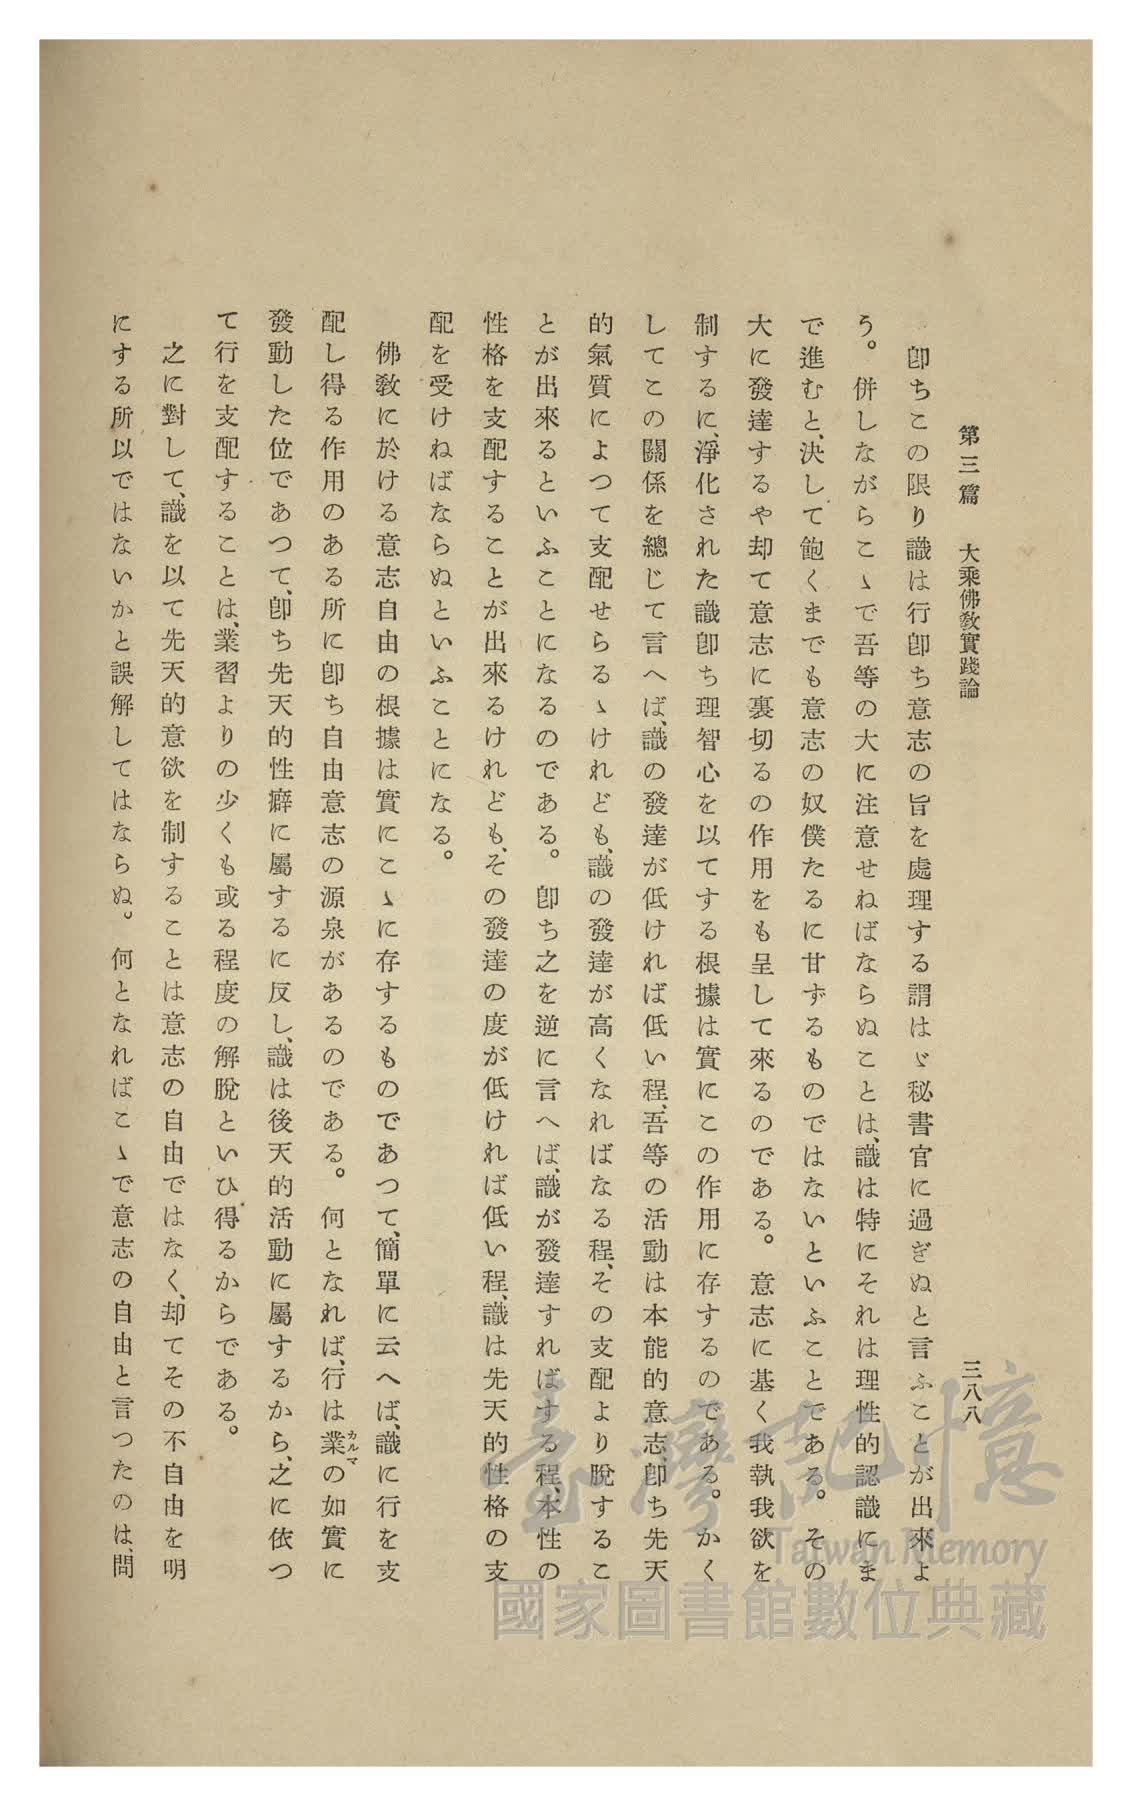 第三篇　大乘佛教實踐論　三八八
卽ちこの限り識は行卽ち意志の旨を處理する謂はゞ秘書官に過ぎぬと言ふことが出來よ
う。併しながらこゝで吾等の大に注意せねばならぬことは、識は特にそれは理性的認識にま
で進むと、決して飽くまでも意志の奴僕たるに甘ずるものではないといふことである。その
大に發達するや却て意志に裏切るの作用をも呈して來るのである。意志に基く我執我欲を
制するに、淨化された識卽ち理智心を以てする根據は實にこの作用に存するのである。かく
してこの關係を總じて言へば、識の發達が低ければ低い程、吾等の活動は本能的意志卽ち先天
的氣質によつて支配せらるゝけれども、識の發達が高くなればなる程、その支配より脫するこ
とが出來るといふことになるのである。卽ち之を逆に言へば、識が發達すればする程、本性の
性格を支配することが出來るけれども、その發達の度が低ければ低い程、識は先天的性格の支
配を受けねばならぬといふことになる。
佛教に於ける意志自由の根據は實にこゝに存するものであつて、簡單に云へば、識に行を支
配し得る作用のある所に卽ち自由意志の源泉があるのである。何となれば、行は業カルマの如實に
發動した位であつて、卽ち先天的性癖に屬するに反し、識は後天的活動に屬するから、之に依つ
て行を支配することは、業習よりの少くも或る程度の解脫といひ得るからである。
之に對して、識を以て先天的意欲を制することは意志の自由ではなく、却てその不自由を明
にする所以ではないかと誤解してはならぬ。何となればこゝで意志の自由と言つたのは、問
臺灣記憶
Taiwan Memory
國家圖書館數位典藏